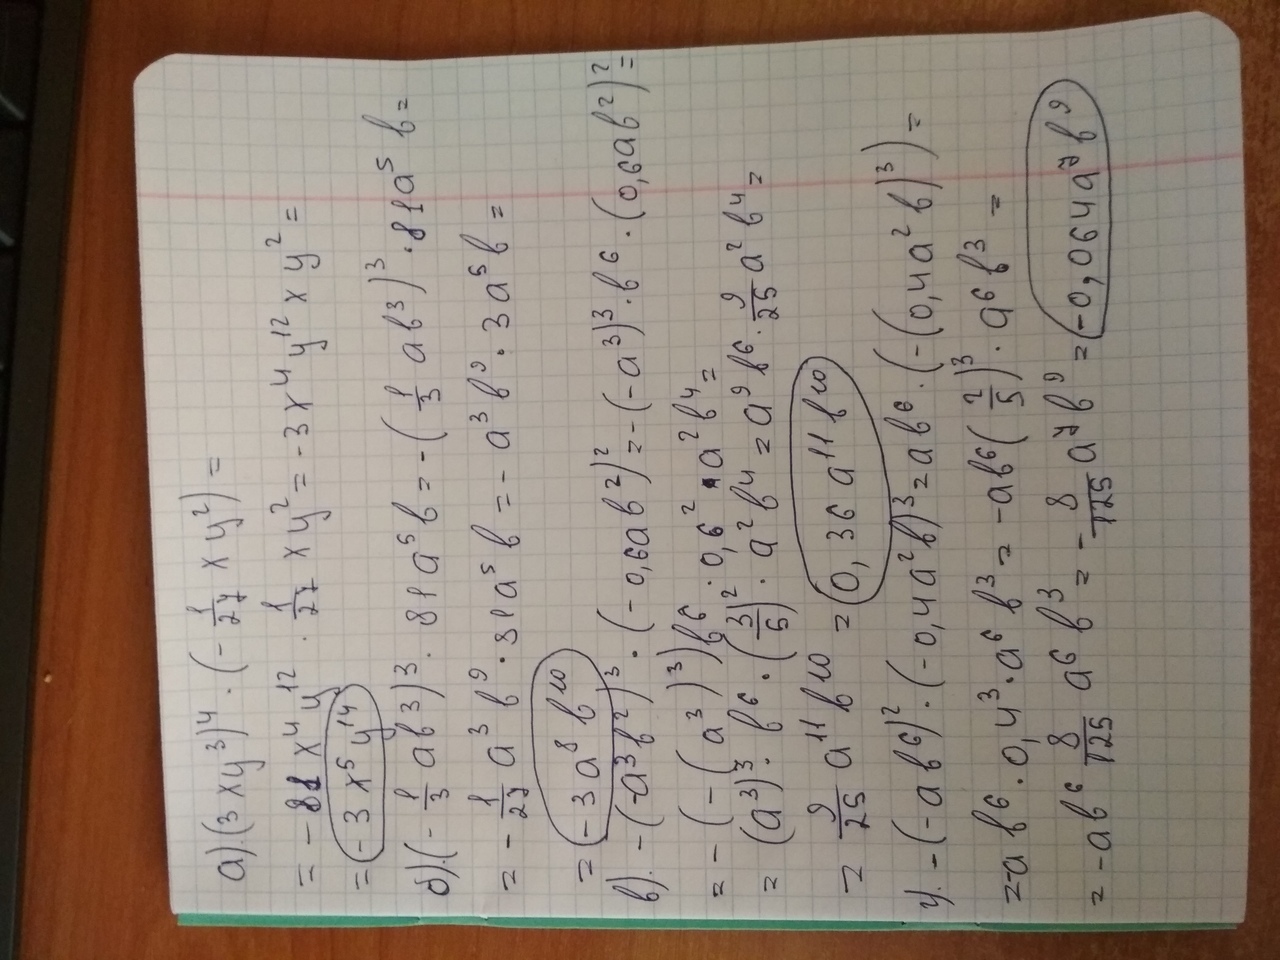 а). (3xy³)⁴ · (-1/27 xy²) =
= -81 x⁴y¹² · 1/27 xy² = -3x⁴y¹²xy² =
= -3x⁵y¹⁴
б). (-1/3 ab³)³ · 81a⁵b = -(1/3 ab³)³ · 81a⁵ b =
= -1/27 a³b⁹ · 81a⁵b = -a³b⁹ · 3a⁵b =
= -3a⁸b¹⁰
в). -(-a³b²)³ · (-0,6ab²)² = -(-a³)³ · b⁶ · (0,6ab²)² =
= -(-(a³)³)b⁶ · 0,6² · a²b⁴ =
= (a³)³ · b⁶ · (3/5)² · a²b⁴ = a⁹b⁶ · 9/25 a²b⁴ =
= 9/25 a¹¹b¹⁰ = 0,36a¹¹b¹⁰
у. -(-ab⁶)² · (-0,4a²b)³ = ab⁶ · (-(0,4a²b)³) =
= -ab⁶ · 0,4³ · a⁶b³ = -ab⁶(2/5)³ · a⁶b³ =
= -ab⁶ 8/125 a⁶b³ = -8/125 a⁷b⁹ = -0,064a⁷b⁹